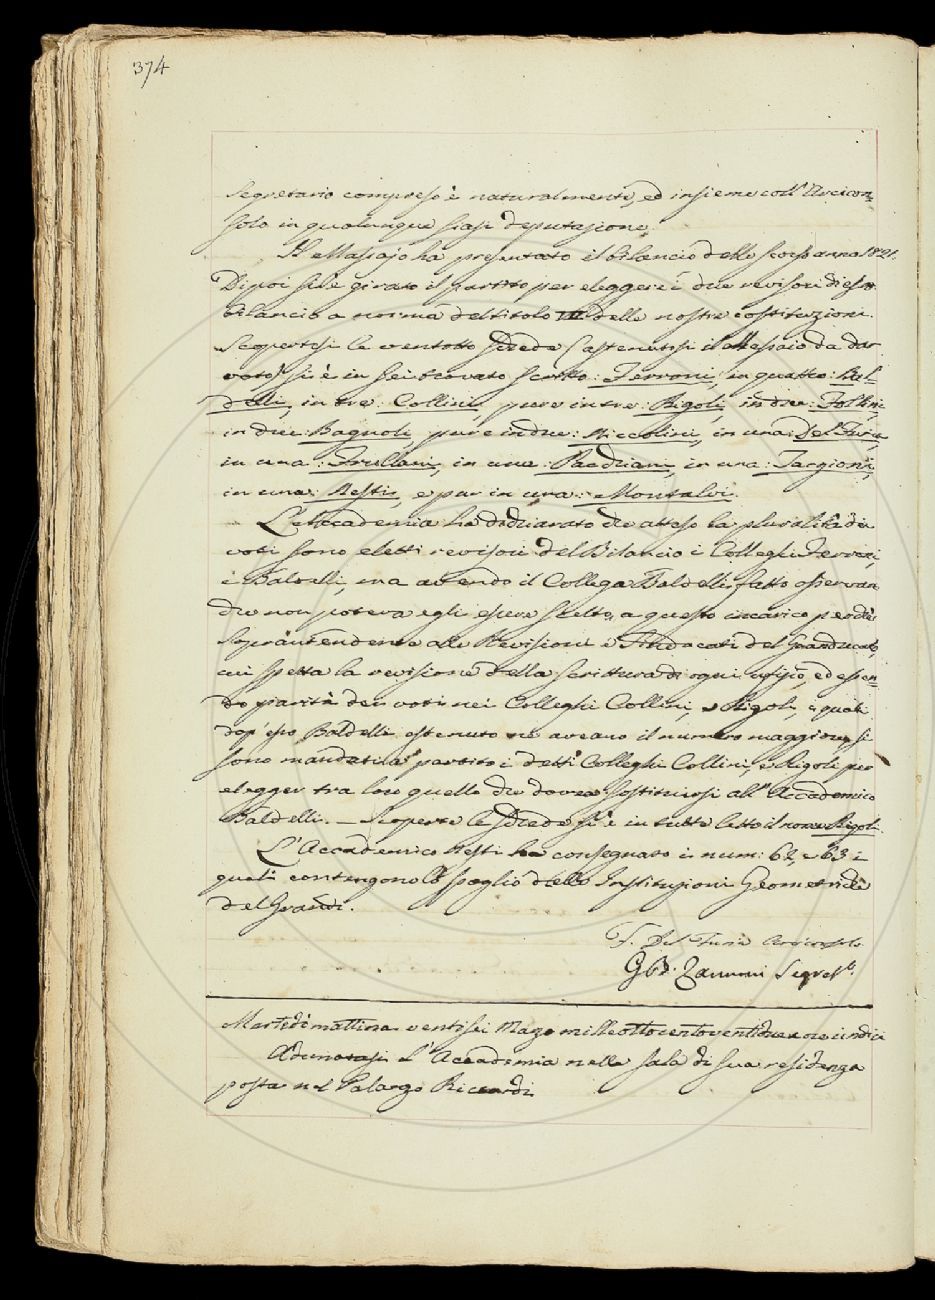 374
Segretario compreso è naturalmente, ed insieme coll' Arcicon-
solo in qualunque siasi deputazione.
Il Massajo ha presentato il bilancio dello scorso anno 1821.
Dipoi si è girato il partito per eleggere i due revisori di esso
bilancio a norma del titolo VIII delle nostre costituzioni.
Scopertesi le ventotto schede (astenutosi il Massaio da dar
voto) si è in sei trovato scritto: Ferroni, in quattro: Bal-
delli, in tre: Collini, pure in tre: Rigoli, in due: Follini,
in due: Bagnoli, pure in due: Niccolini, in una: Del Furia,
in una: Frullani, in una: Paedriani, in una: Targioni,
in una: Sestis, e pur in una: Montalvi.
L'Accademia ha dichiarato che atteso la pluralità dei
voti sono eletti revisori del Bilancio i Colleghi Ferroni,
e Baldelli, ma avendo il Collega Baldelli fatto osservare
che non poteva egli essere scelto a questo incarico perchè
Soprintendente alle Revisioni e Sindacati del Granducato,
cui spetta la revisione della Scrittura di ogni ufizio, ed essen-
do parità dei voti nei Colleghi Collini, e Rigoli, i quali
dop' esso Baldelli ottenuto ne aveano il numero maggiore, si
sono mandati a partito i detti Colleghi Collini, e Rigoli per
elegger tra loro quello che dovea sostituirsi all' Accademico
Baldelli. — Scoperte le schede si è in tutte letto il nome Rigoli.
L'Accademico Sesti ha consegnato i num: 62, e 63 i
quali contengono lo spoglio delle Instituzioni Geometriche
del Grandi.
F. Del Furia Arciconsolo
G. B. Zannoni Segret.º
Martedì mattina ventisei Marzo mille ottocento ventidue a ore undici
Adunatasi l'Accademia nella sala di sua residenza
posta nel Palazzo Riccardi